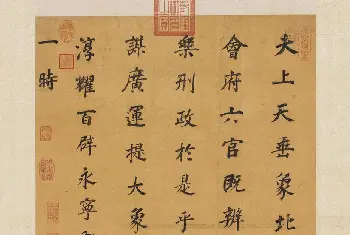 夫上天垂象北
會府六官既辨
樂刑政於是乎
謀廣運提大象
淳耀百辟永寧
一時